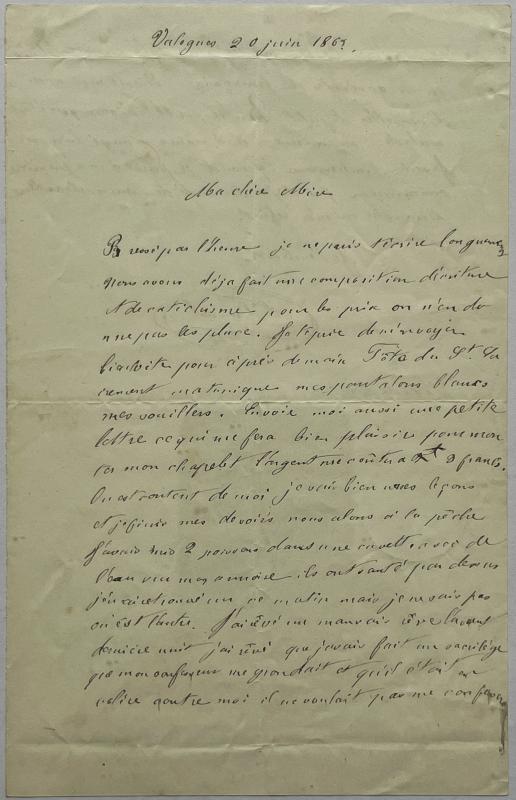 Valognes 20 juin 1863.
Ma chère Mère
Pressé pas l'heure je ne puis t'écrire longuement
nous avons déja fait une composition d'écriture
et de catéchisme pour les prix on n'en do
nne pas les places. Je te prie de m'envoyer
pour après demain Fête du St. Sa
crement ma tunique mes pantalons blancs
mes souilliers. Envoie moi aussi une petite
lettre ce qui me fera bien plaisir pour mon
mon chapelet d'argent me coûtera 2 francs.
On est content de moi. je sais bien mes leçons
et je finis mes devoirs nous alons à la pêche
J'avais mis 2 poissons dans une cuvette avec de
l'eau sur mon armoire ils ont sauté par dessus
j'en ai retrouvé un ce matin mais je ne sais pas
où est l'autre. J'ai rêvé un mauvais rêve l'avant
dernière nuit j'ai rêvé que j'avais fait un sacrilège
que mon confesseur me grondait et qu'il était en
colère contre moi il ne voulait pas me confesser